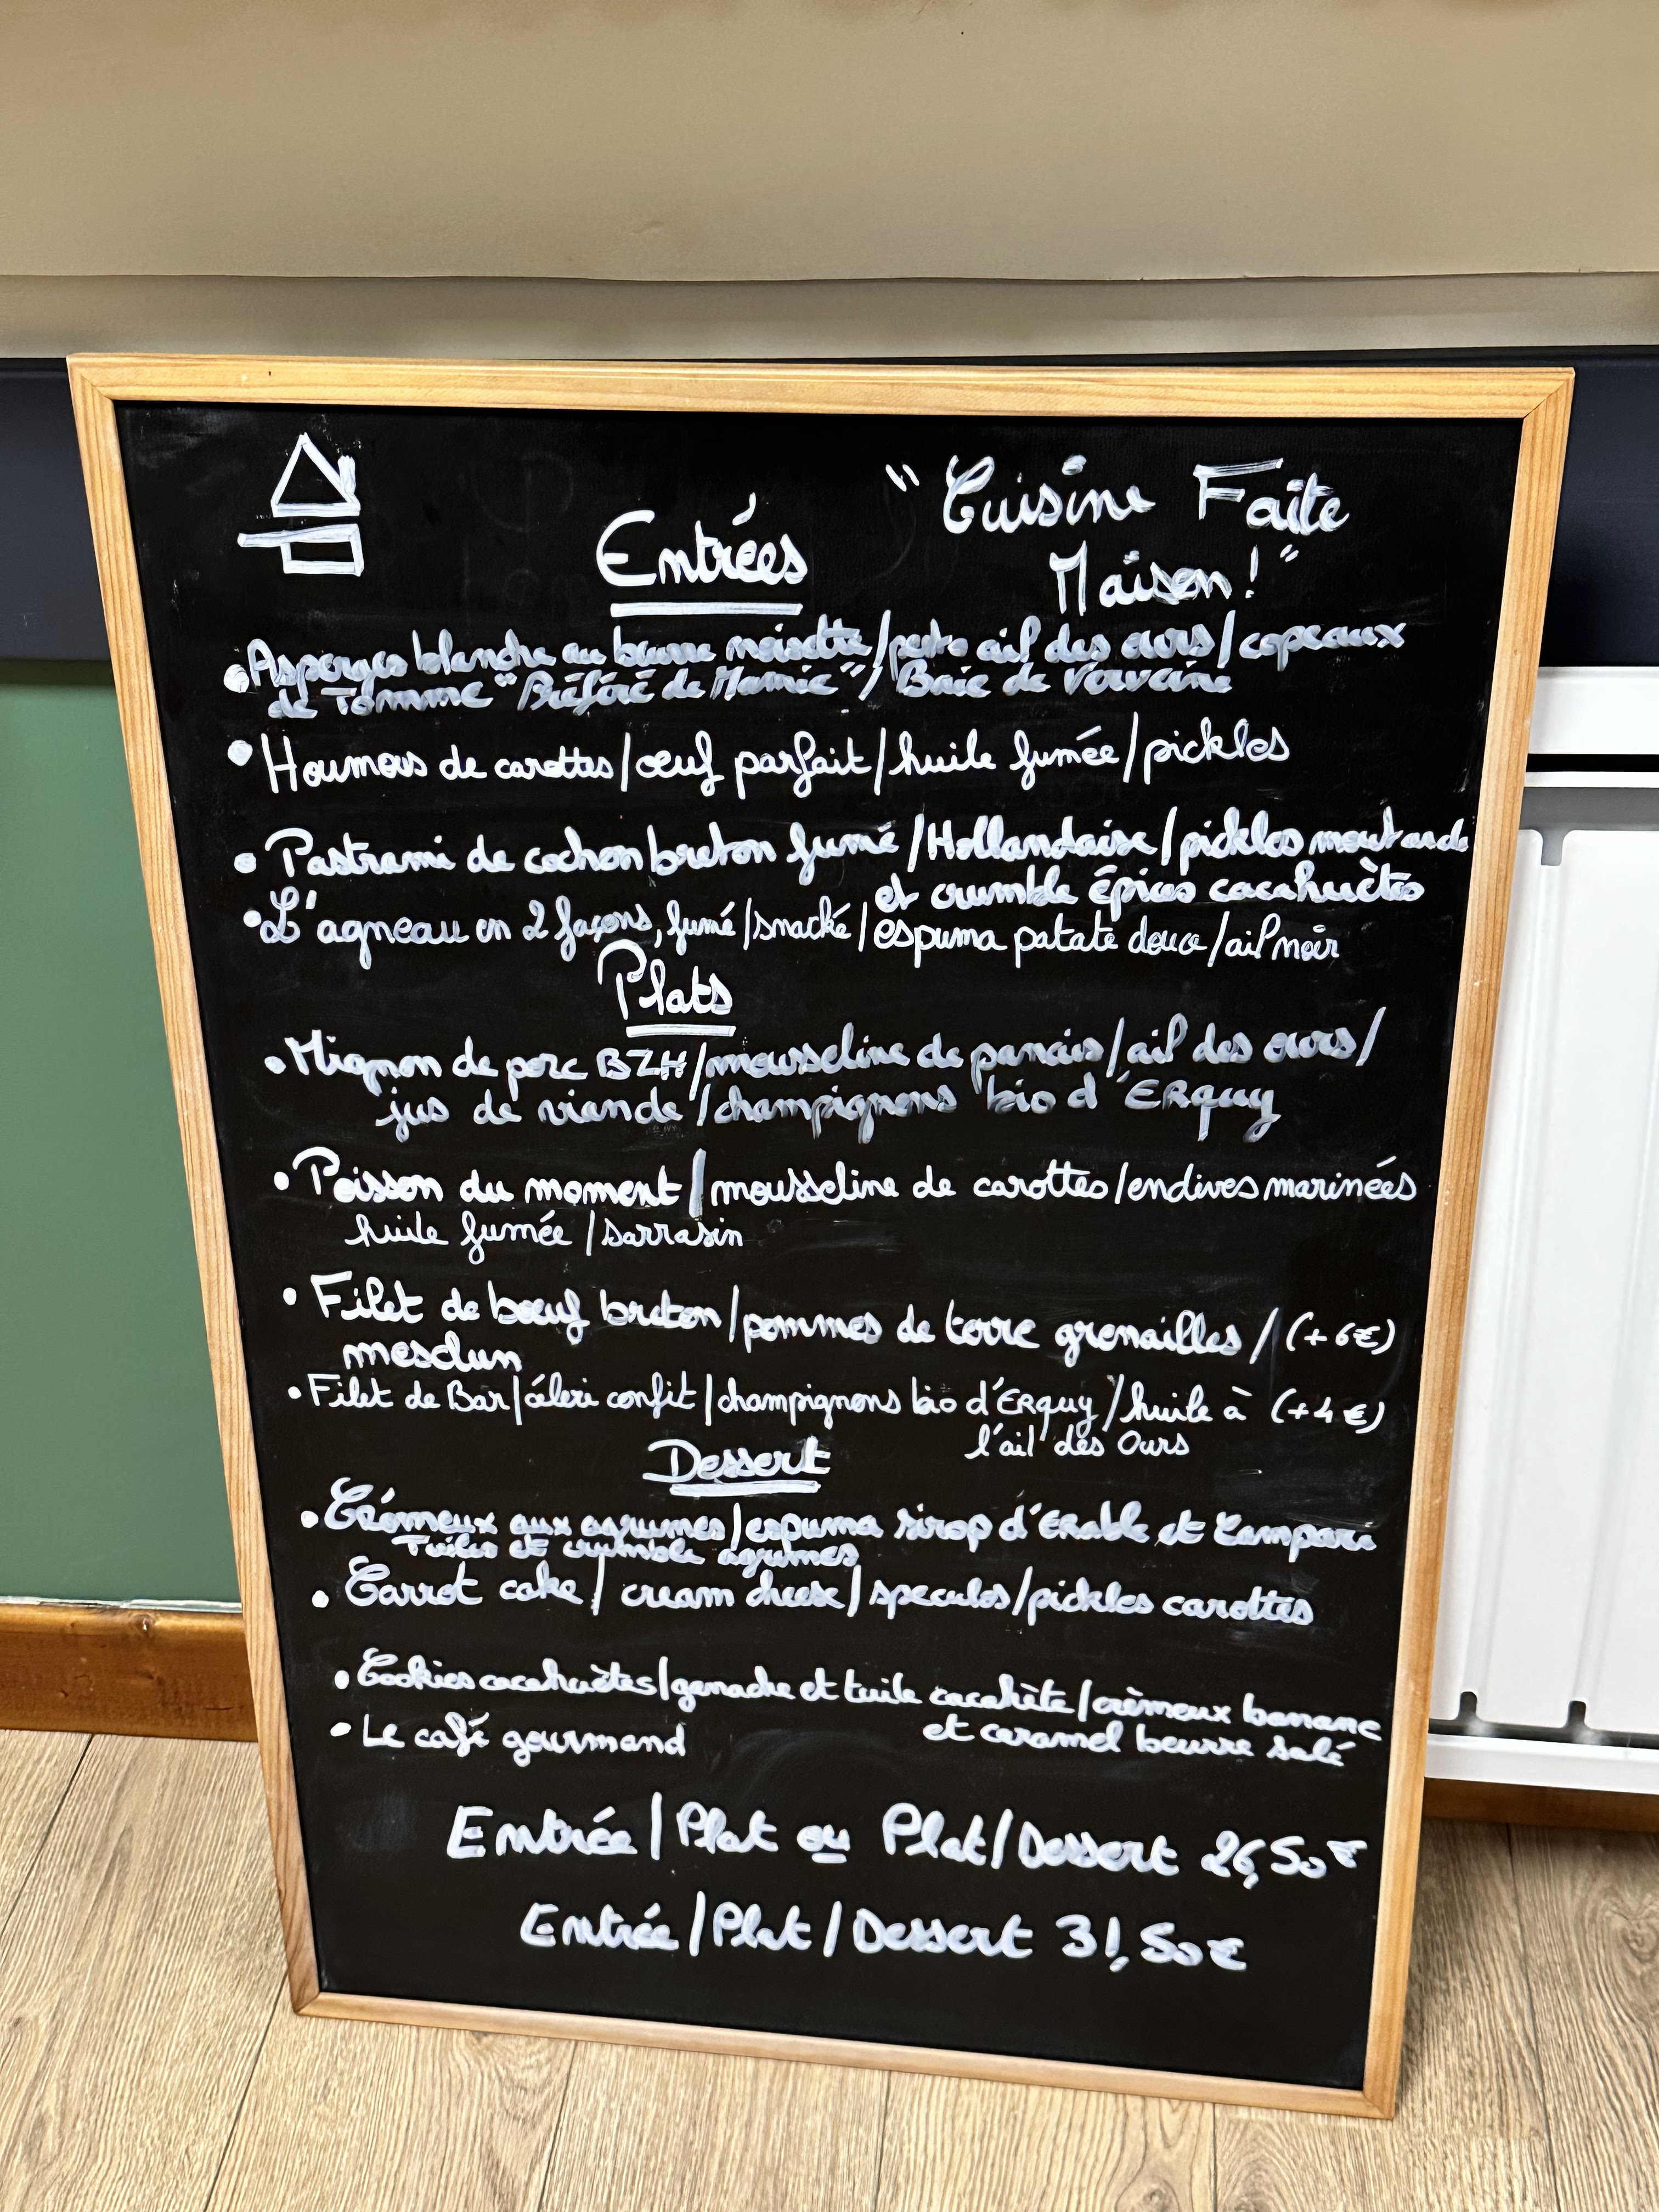 "Cuisine Faite
Maison!"
Entrées
• Asperges blanche au beurre noisette/pesto ail des ours/copeaux
de Tomme "Préféré de Mamie"/Baie de Verveine
• Houmous de carottes/œuf parfait/huile fumée/pickles
• Pastrami de cochon breton fumé/Hollandaise/pickles moutarde
et crumble épices cacahuètes
• L'agneau en 2 façons, fumé/snacké/espuma patate douce/ail noir
Plats
• Mignon de porc BZH/mousseline de panais/ail des ours/
jus de viande/champignons bio d'ERquy
• Poisson du moment/mousseline de carottes/endives marinées
huile fumée/sarrasin
• Filet de bœuf breton/pommes de terre grenailles/(+6€)
mesclun
• Filet de Bar/céleri confit/champignons bio d'ERquy/huile à (+4€)
l'ail des Ours
Dessert
• Crémeux aux agrumes/espuma sirop d'ERable et Campari
Tuiles et crumble agrumes
• Carrot cake/cream cheese/speculos/pickles carottes
• Cookies cacahuètes/ganache et tuile cacahète/crèmeux banane
et caramel beurre salé
• Le café gourmand
Entrée/Plat ou Plat/Dessert 26,50€
Entrée/Plat/Dessert 31,50€